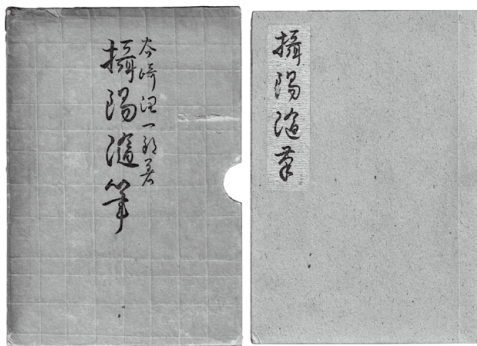 谷崎潤一郎著
攝陽随筆
攝陽随筆